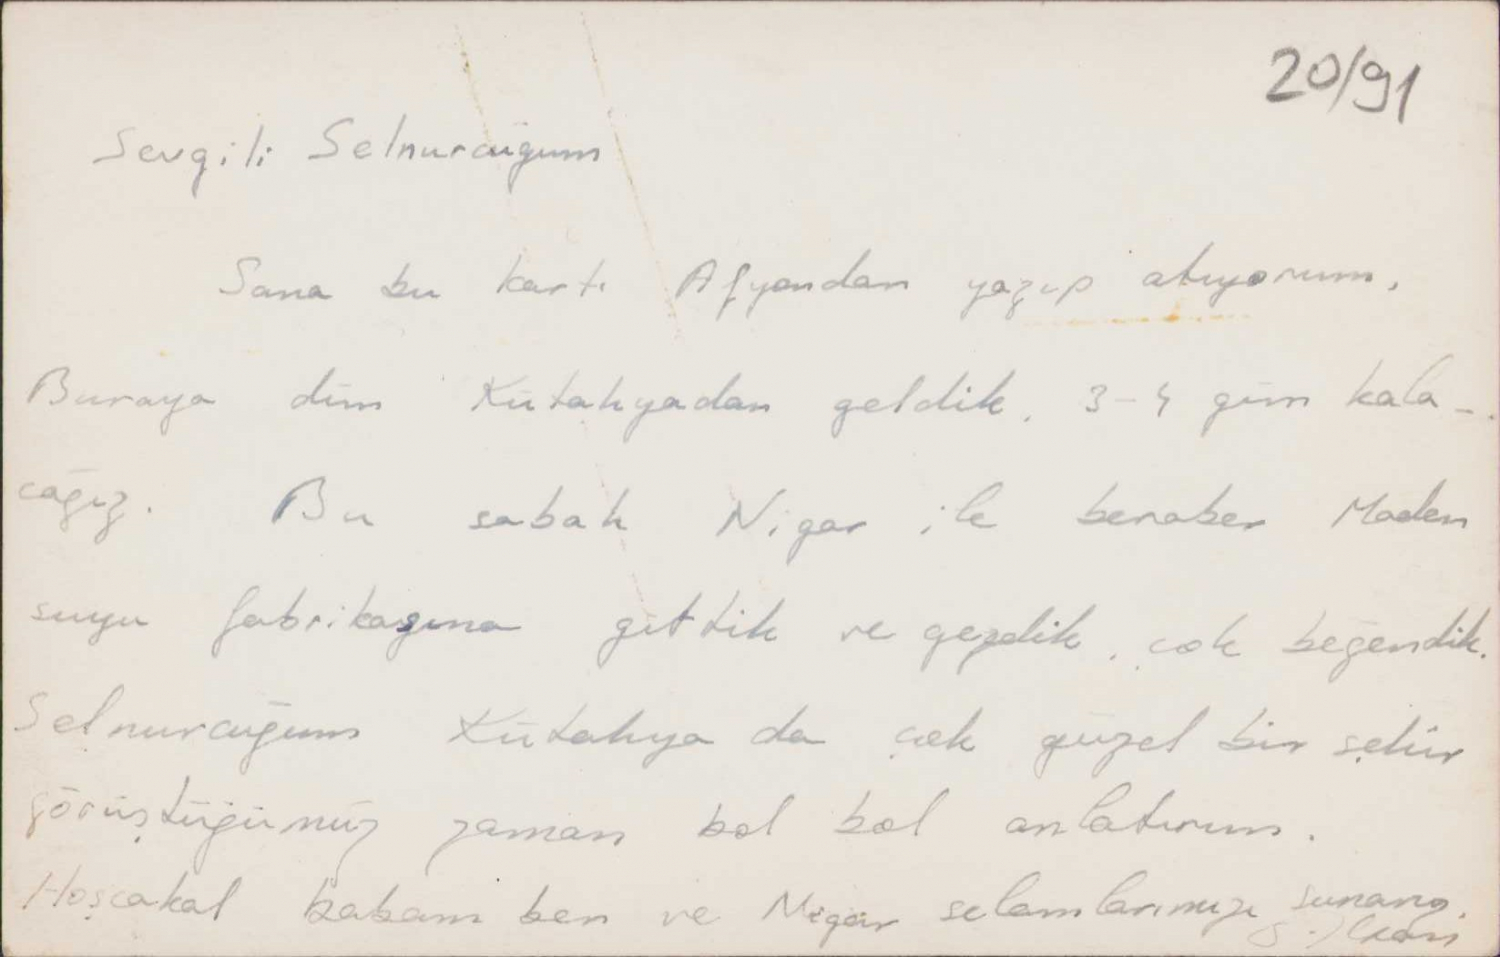 20/91
Sevgili Selnurcuğum
Sana bu kartı Afyondan yazıp atıyorum.
Buraya dün Kütahyadan geldik. 3-4 gün kala-
cağız. Bu sabah Nigar ile beraber Maden
suyu fabrikasına gittik ve gezdik. çok beğendik.
Selnurcuğum Kütahya da çok güzel bir şehir
görüştüğümüz zaman bol bol anlatırım.
Hoşcakal babam ben ve Nigar selamlarımızı sunarız.